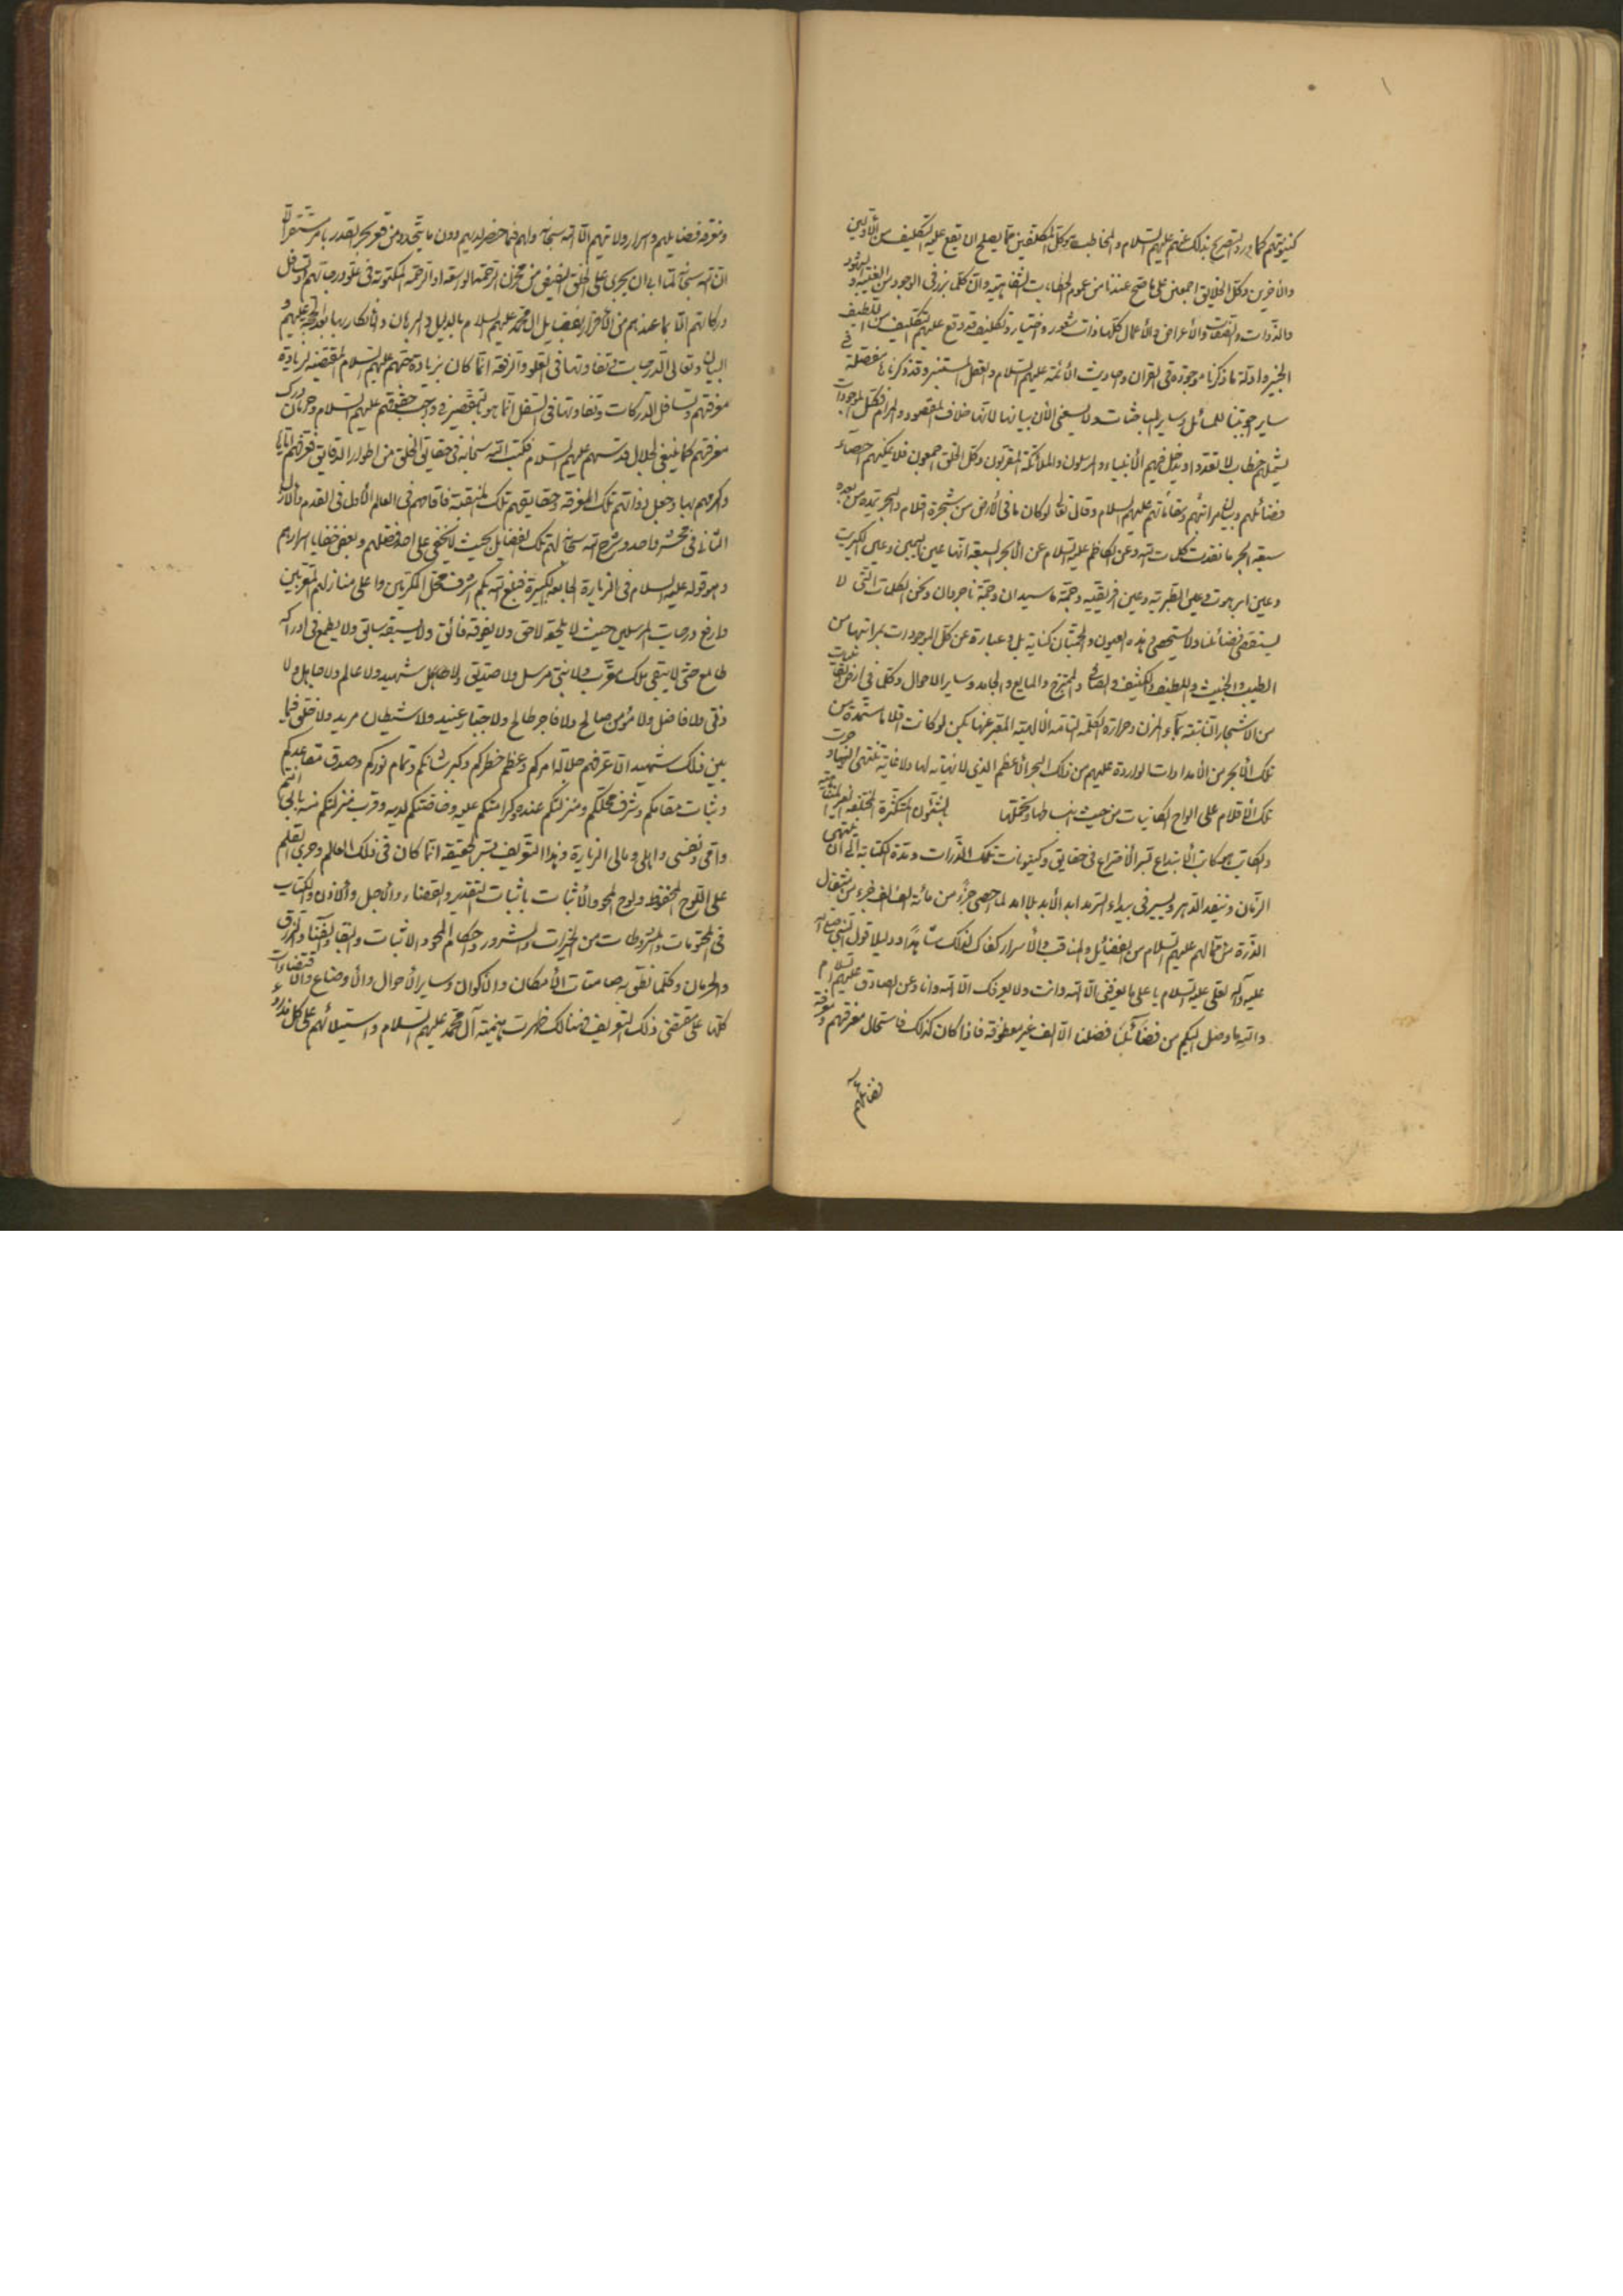 كينونتهم كما ورد التصريح بذلك عنهم عليهم السلام والمخاطب وكل المكلفين مما يصلح ان يقع عليه التكليف من الأولين
والأخرين وكل الخلايق اجمعين على ما صح عندنا من عموم الخطابات الشفاهية وان كلما برز في الوجود من الغيب والشهود
والذوات والصفات والأعراض والأعمال كلها ذات شعور واختيار وتكليف قد وقع عليهم التكليف من اللطيف
الخبير وادلة ما ذكرنا موجودة في القران واحاديث الأئمة عليهم السلام والعقل المستنير وقد ذكرناها مفصلة في
ساير اجوبتنا للمسائل وساير المباحثات ولا يسعني الأن بيانها لانها خلاف المقصود والمرام فكل الموجودات
يشملهم خطاب لا تعدوا ويدخل فيهم الأنبياء والمرسلون والملائكة المقربون وكل الخلق اجمعون فلا يمكنهم احصاء
فضائلهم وبلوغ مراتبهم ومقاماتهم عليهم السلام وقال تعالى لو كان ما في الأرض من شجرة اقلام والبحر يمده من بعده
سبعة ابحر ما نفدت كلمات الله وعن الكاظم عليه السلام عن الأبحر السبعة انها عين اليمين وعين الكبريت
وعين ابرهوت وعين الطبرية وعين افريقيه وحمة ماسيدان وحمة ناجروان ونحن الكلمات التي لا
يستقصى فضائلنا ولا يستحصى وهذه العيون والحمتان كناية بل وعبارة عن كل الموجودات بمراتبها من
الطيب والخبيث واللطيف والكثيف والصافي والممتزج والمايع والجامد وساير الاحوال وكلما في ارض القابليات
من الأشجار النابتة بماء المزن وحرارة الكلمة التامة الألهية المعبر عنها بكن لو كانت اقلاما مستمدة من
تلك الأبحر من الأمدادات الواردة عليهم من ذلك البحر الأعظم الذي لا نهاية لها ولا غاية تنتهي اليها وجرت
تلك الأقلام على الواح الكائنات من حيث انبساطها وتحملها الشئون المتكثرة المختلفة الغير المتناهية
والكاتب كاتب الأبداع بسر الأختراع في حقايق وكينونات تلك الذرات ومدة الكتابة الى ان ينتهي
الزمان وينفد الدهر ويسير في بيداء السرمد ابد الأبد بلا امد لما احصى جزء من مائة الف الف جزء من مثقال
الذرة مما لهم عليهم السلام من الفضائل والمناقب والأسرار كفاك لذلك شاهدا ودليلا قول النبي صلى الله
عليه وآله لعلي عليه السلام يا علي ما يعرفني الا الله وانت ولا يعرفك الا الله وانا وعن الصادق عليه السلام
والله ما وصل اليكم من فضائلنا فضلنا الا الف غير معطوفة فاذا كان كذلك فاستحال معرفتهم ومعرفة
فضائلهم
ومعرفة فضايلهم واسرار ولايتهم الا الله سبحانه ولهم فيما حضر لديهم دون ما يتجدد من قعر بحر القدر
ان الله سبحانه لما ابى ان يجري على الخلق الفيض من مخزن الرحمة الواسعة او الرحمة المكتوبة في علو درجاتهم وتسافل
دركاتهم الا بما عندهم من الأقرار بفضايل ال محمد عليهم السلام بالدليل والبرهان والأنكار بها بعد الحجة عليهم و
البيان وتعالى الدرجات وتفاوتها في العلو والرفعة انما كان بزيادة حبهم عليهم السلام المقتضية لزيادة
معرفتهم وتسافل الدركات وتفاوتها في السفل انما هو بالتقصير في واجب حقوقهم عليهم السلام وحرمان درك
معرفتهم كما ينبغي لجلال قدسهم عليهم السلام فكتب الله سبحانه في حقايق الخلق من اطوار الدقايق تعريفهم اياها
وكرمهم بها وجعل ذواتهم تلك المعرفة وحقايقهم تلك المنقبة فاقامهم في العالم الأول في القدم والأزل
الثاني في محشر واحد وشرح الله سبحانه لهم تلك الفضايل بحيث لا يخفى على احد فضلهم وبعض خفايا اسرارهم
وهو قوله عليه السلام في الزيارة الجامعة الكبيرة فبلغ الله بكم اشرف محل المكرمين واعلى منازل المقربين
وارفع درجات المرسلين حيث لا يلحقه لاحق ولا يفوقه فائق ولا يسبقه سابق ولا يطمع في ادراكه
طامع حتى لا يبقى ملك مقرب ولا نبي مرسل ولا صديق ولا شهيد ولا عالم ولا جاهل ولا
دني ولا فاضل ولا مؤمن صالح ولا فاجر طالح ولا جبار عنيد ولا شيطان مريد ولا خلق فيما
بين ذلك شهيد الا عرفهم جلالة امركم وعظم خطركم وكبر شانكم وتمام نوركم وصدق مقاعدكم
وثبات مقامكم وشرف محلكم ومنزلتكم عنده وكرامتكم عليه وخاصتكم لديه وقرب منزلتكم منه بابي انتم
وامي ونفسي واهلي ومالي الزيارة وهذا التعريف بسر الحقيقة انما كان في ذلك العالم وجرى القلم
على اللوح المحفوظ ولوح المحو والأثبات باثبات التقدير والقضاء والأجل والأذن والكتاب
في المحتومات والمشروطات من الخيرات والشرور واحكام المحو والاثبات والبقا والفنا والرزق
والحرمان وكلما نطق به صامتات الأمكان والأكوان وساير الأحوال والأوضاع والأقتضاءات
كلها على مقتضى ذلك التعريف فهنالك ظهرت هيمنة آل محمد عليهم السلام واستيلائهم على كل